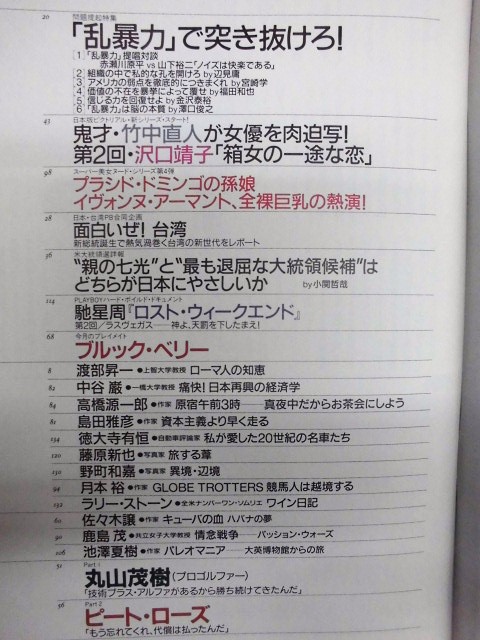 20
問題提起特集
「乱暴力」で突き抜けろ!
[1]「乱暴力」提唱対談
赤瀬川原平 vs 山下裕二「ノイズは快楽である」
[2] 組織の中で私的な孔を開けろ by 辺見庸
[3] アメリカの弱点を徹底的につきまくれ by 宮崎学
[4] 価値の不在を暴挙によって覆せ by 福田和也
[5] 信じる力を回復せよ by 金沢泰裕
[6]「乱暴力」は脳の本質 by 澤口俊之
43
日本版ピクトリアル・新シリーズ・スタート!
鬼才・竹中直人が女優を肉迫写!
第2回・沢口靖子「箱女の一途な恋」
98
スーパー美女ヌード・シリーズ第4弾
プラシド・ドミンゴの孫娘
イヴォンヌ・アーマント、全裸巨乳の熱演!
28
日本・台湾PB合同企画
面白いぜ! 台湾
新総統誕生で熱気渦巻く台湾の新世代をレポート
36
米大統領選詳報
“親の七光”と“最も退屈な大統領候補”は
どちらが日本にやさしいか by 小関哲哉
114
PLAYBOYハード・ボイルド・ドキュメント
馳星周『ロスト・ウィークエンド』
第2回/ラスヴェガス──神よ、天罰を下したまえ!
68
今月のプレイメイト
ブルック・ベリー
8 渡部昇一 ●上智大学教授 ローマ人の知恵
82 中谷 巌 ●一橋大学教授 痛快!日本再興の経済学
84 高橋源一郎 ●作家 原宿午前3時──真夜中だからお茶会にしよう
81 島田雅彦 ●作家 資本主義より早く走る
134 徳大寺有恒 ●自動車評論家 私が愛した20世紀の名車たち
120 藤原新也 ●写真家 旅する葦
130 野町和嘉 ●写真家 異境・辺境
94 月本 裕 ●作家 GLOBE TROTTERS 競馬人は越境する
132 ラリー・ストーン ●全米ナンバーワン・ソムリエ ワイン日記
60 佐々木譲 ●作家 キューバの血 ハバナの夢
90 鹿島 茂 ●共立女子大学教授 情念戦争──パッション・ウォーズ
106 池澤夏樹 ●作家 パレオマニア──大英博物館からの旅
51
Part 1
丸山茂樹(プロゴルファー)
「技術プラス・アルファがあるから勝ち続けてきたんだ」
56
Part 2
ピート・ローズ
「もう忘れてくれ、代償は払ったんだ」